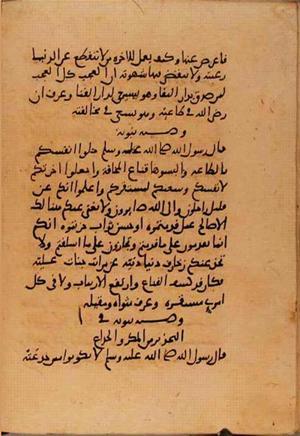 فاعرض عنها وكيف يعمل للاخره من لا تنقطع عن الدنيا
رغبته ولا تنقضي فيها شهوته ان العجب كل العجب
لمن صدق بدار البقا وهو يسعى لدار الفنا وعرف ان
رضى الله في طاعته وهو يسعى في مخالفته
قال رسول الله صلى الله عليه وسلم حلوا انفسكم
بالطاعه والبسوها قناع المخافة واجعلوا اخرتكم
لانفسكم وسعيكم لمستقركم واعلموا انكم عن
قليل راحلون والى الله صايرون ولا يغني عنكم هنالك
الا صالح عمل قدمتموه او حسن ثواب حزتموه انكم
انما تقدمون على ما قدمتم وتجازون على ما اسلفتم ولا
تخدعنكم زخارف دنيا دنيه عن مراتب جنات عليه
فكان قد كشف القناع وارتفع الارتياب ولاقى كل
امرئ مستقره وعرف مثواه ومقيله
في
التحذير من المكر والخداع
قال رسول الله صلى الله عليه وسلم لا تكونوا ممن خدعته